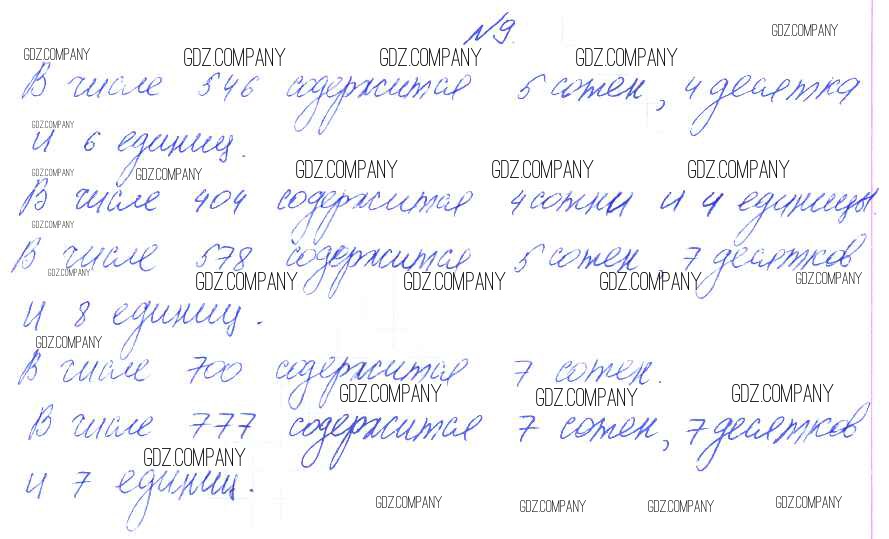 №9.
GDZ.COMPANY
GDZ.COMPANY GDZ.COMPANY GDZ.COMPANY GDZ.COMPANY
В числе 546 содержится 5 сотен, 4 десятка
GDZ.COMPANY
и 6 единиц.
GDZ.COMPANY GDZ.COMPANY GDZ.COMPANY GDZ.COMPANY GDZ.COMPANY
В числе 404 содержится 4 сотни и 4 единицы.
GDZ.COMPANY
В числе 578 содержится 5 сотен, 7 десятков
GDZ.COMPANY GDZ.COMPANY GDZ.COMPANY GDZ.COMPANY GDZ.COMPANY
и 8 единиц.
GDZ.COMPANY
В числе 700 содержится 7 сотен.
GDZ.COMPANY GDZ.COMPANY GDZ.COMPANY
В числе 777 содержится 7 сотен, 7 десятков
GDZ.COMPANY
и 7 единиц.
GDZ.COMPANY GDZ.COMPANY GDZ.COMPANY GDZ.COMPANY